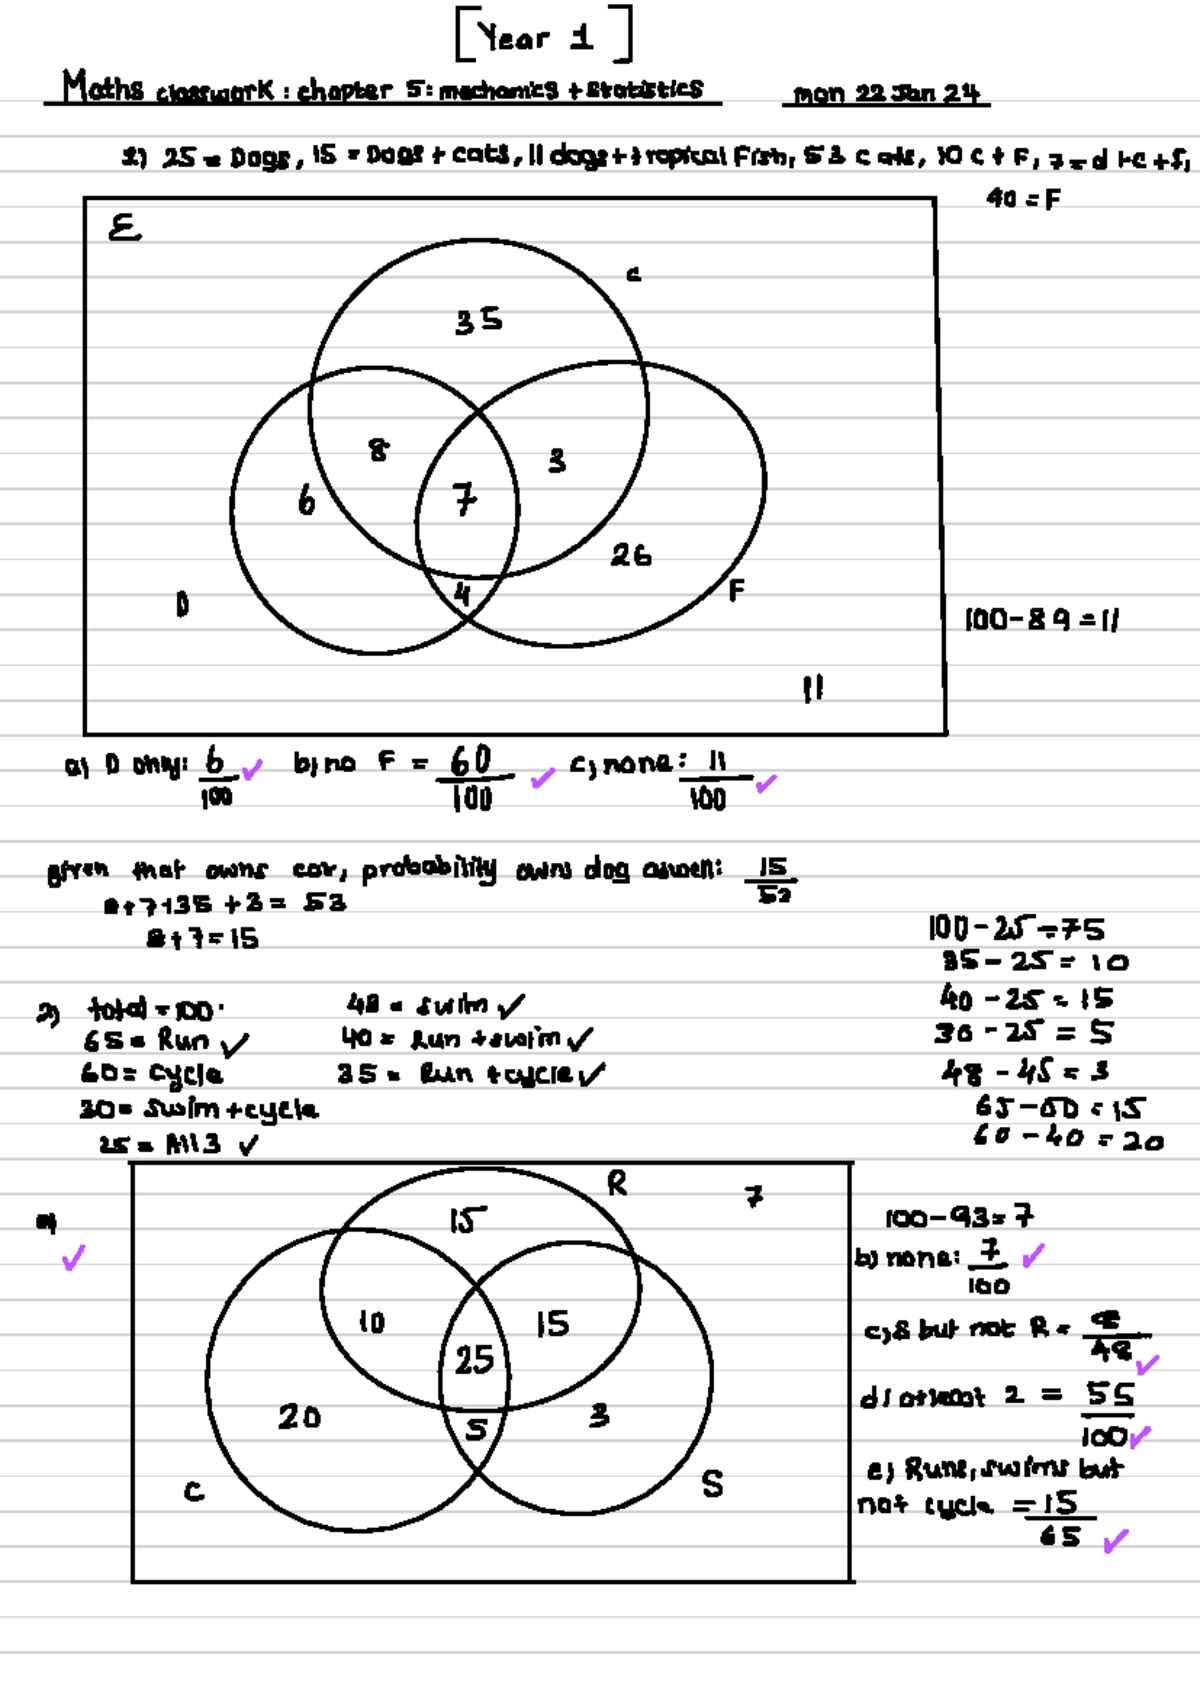 [Year 1]
Maths classwork : chapter 5: mechanics + statistics mon 22 Jan 24
1) 25 = Dogs, 15 = Dogs + cats, 11 dogs + tropical Fish, 53 cats, 10 c + F, 7 = d + c + f,
40 = F
ℰ
C
35
8
3
6
7
26
4
F
D
100 - 89 = 11
11
a) D only: 6/100 b) no F = 60/100 c) none: 11/100
given that owns cat, probability owns dog aswell: 15/53
8 + 7 + 35 + 3 = 53
8 + 7 = 15
100 - 25 = 75
35 - 25 = 10
2) total = 100 48 = swim ✓
40 - 25 = 15
65 = Run ✓ 40 = Run + swim ✓
30 - 25 = 5
60 = cycle 35 = Run + cycle ✓
48 - 45 = 3
30 = swim + cycle
65 - 50 = 15
25 = All 3 ✓
60 - 40 = 20
R
7
a)
15
100 - 93 = 7
b) none: 7/100
10
15
c) 8 but not R = 8/48
25
d) atleast 2 = 55/100
20
3
5
e) Runs, swims but
C
S
not cycle = 15/65